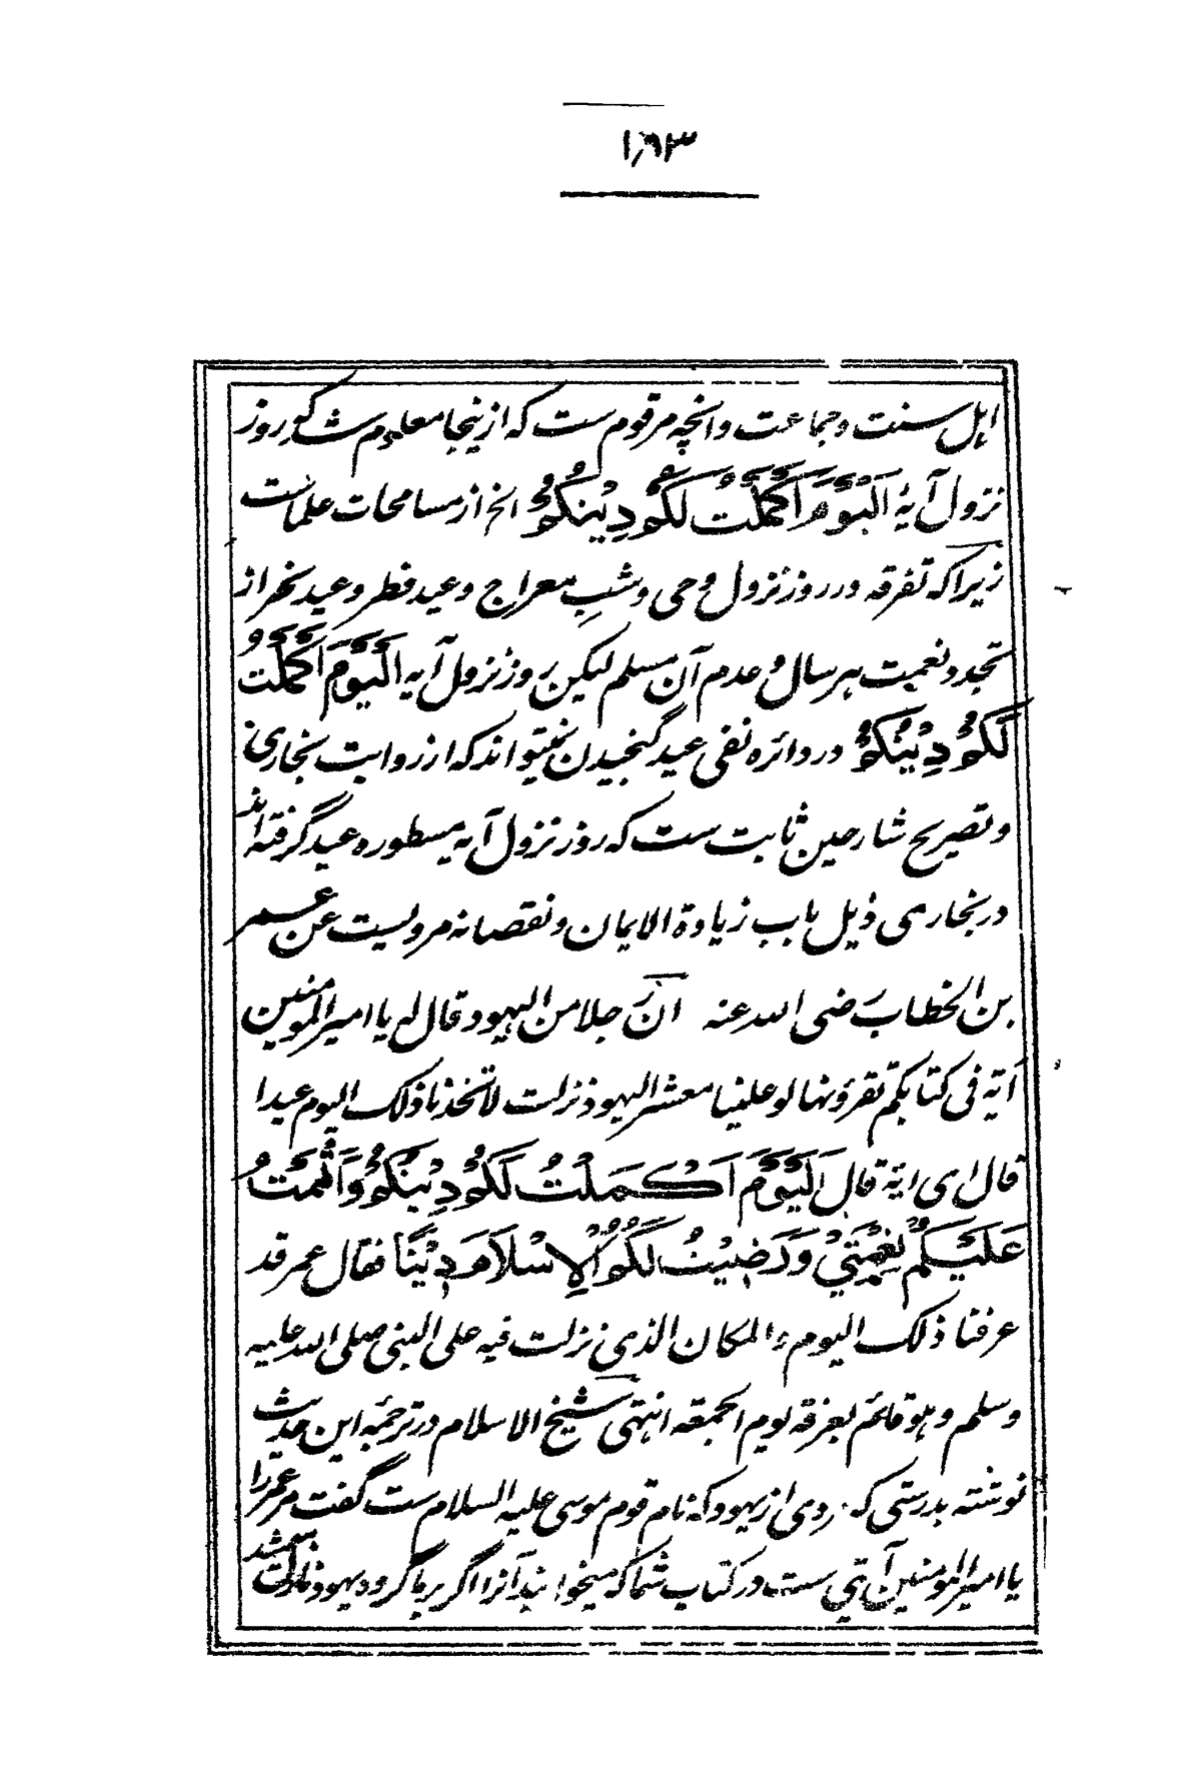 ۱۶۳
اہل سنت و جماعت و انچہ مرقوم ست کہ ازینجا معلوم شد کہ روز
نزول آیۂ اَلْيَوْمَ اَكْمَلْتُ لَكُمْ دِيْنَكُمْ الخ از مسامحات علماست
زیراکہ تفرقہ در روز نزول وحی و شب معراج و عید فطر و عید نحر از
تجدد نعمت ہر سال و عدم آن مسلم لیکن روز نزول آیہ اَلْيَوْمَ اَكْمَلْتُ
لَكُمْ دِيْنَكُمْ در دائرہ نفی عید گنجیدن نمیتواند کہ از روایت بخاری
و تصریح شارحین ثابت ست کہ روز نزول آیہ مسطورہ عید گرفتہ اند
در بخاری ذیل باب زیادة الایمان و نقصانہ مرویست عن عمر
بن الخطاب رضی اللہ عنہ ان رجلا من الیہود قال لہ یا امیر المومنین
آیة فی کتابکم تقرؤنہا لو علینا معشر الیہود نزلت لاتخذنا ذلک الیوم عیدا
قال ای ایة قال اَلْيَوْمَ اَكْمَلْتُ لَكُمْ دِيْنَكُمْ وَاَتْمَمْتُ
عَلَيْكُمْ نِعْمَتِيْ وَرَضِيْتُ لَكُمُ الْاِسْلَامَ دِيْنًا فقال عمر قد
عرفنا ذلک الیوم و المکان الذی نزلت فیہ علی النبی صلی اللہ علیہ
وسلم و ہو قائم بعرفة یوم الجمعة انتہی شیخ الاسلام در ترجمۂ این حدیث
نوشتہ بدرستی کہ مردی از یہود کہ نام قوم موسی علیہ السلام ست گفت مر عمر را
یا امیر المومنین آیتی ست در کتاب شما کہ میخوانید آنرا اگر بر ما گروہ یہود نازل میشد